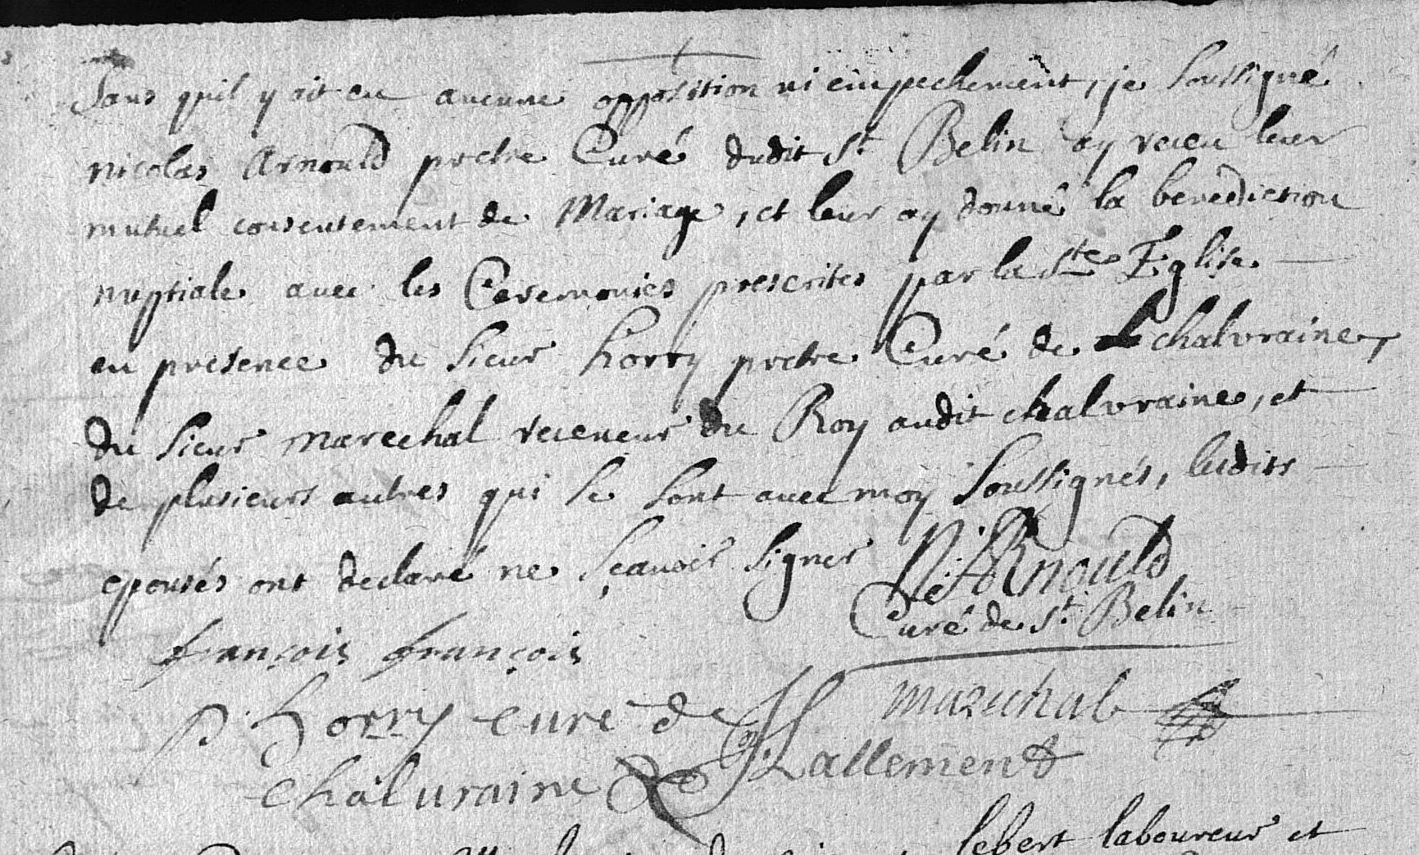 Sans quil y ait eu aucune opposition ni empechement, je soussigné
nicolas Arnould pretre Curé dudit St Belin ay receu leur
mutuel consentement de Mariage, et leur ay donné la benediction
nuptiale avec les Ceremonies prescrites par la Ste Eglise
en presence du sieur horry pretre Curé de chalvraine,
du sieur marechal receveur du Roy audit chalvraine, et
de plusieurs autres qui se sont avec moy soussignés, lesdits
epousés ont declaré ne sçavoir signer N. Arnould
Curé de St Belin
françois françois
p horry cure de marechal
chalvraine Lallement
lebert laboureur et